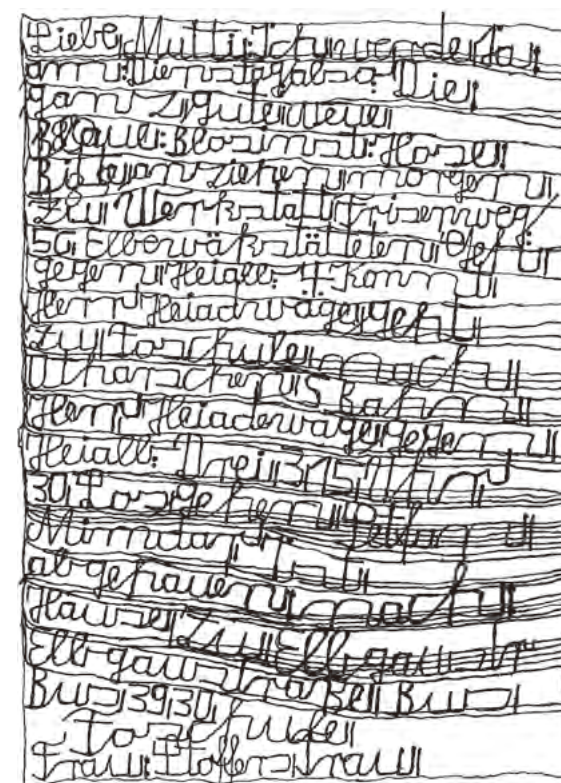 Liebe Mutti: Ich werde Ja
am: Dienstag also Die
ganz gute neue
Blaue: Blosinst: Hose
Bitte anziehen morgen
zu Werkstatt Friesenweg
5c Elbewäkstätteten
gegen Heialb: 4 Kommt
Herr Heiaderwäge geht
zu Torschule mach
Otharschen S Bahn
Herr Heiaderwage gegen
Heialb: Drei 315 Uhr
30 Los gehen
Minnitar
abgefauen mach
Hause Zu Elbgaustr
Elbgaustraße Bus
Bus 39 30
Torschule
Frau: Stoffers Frau